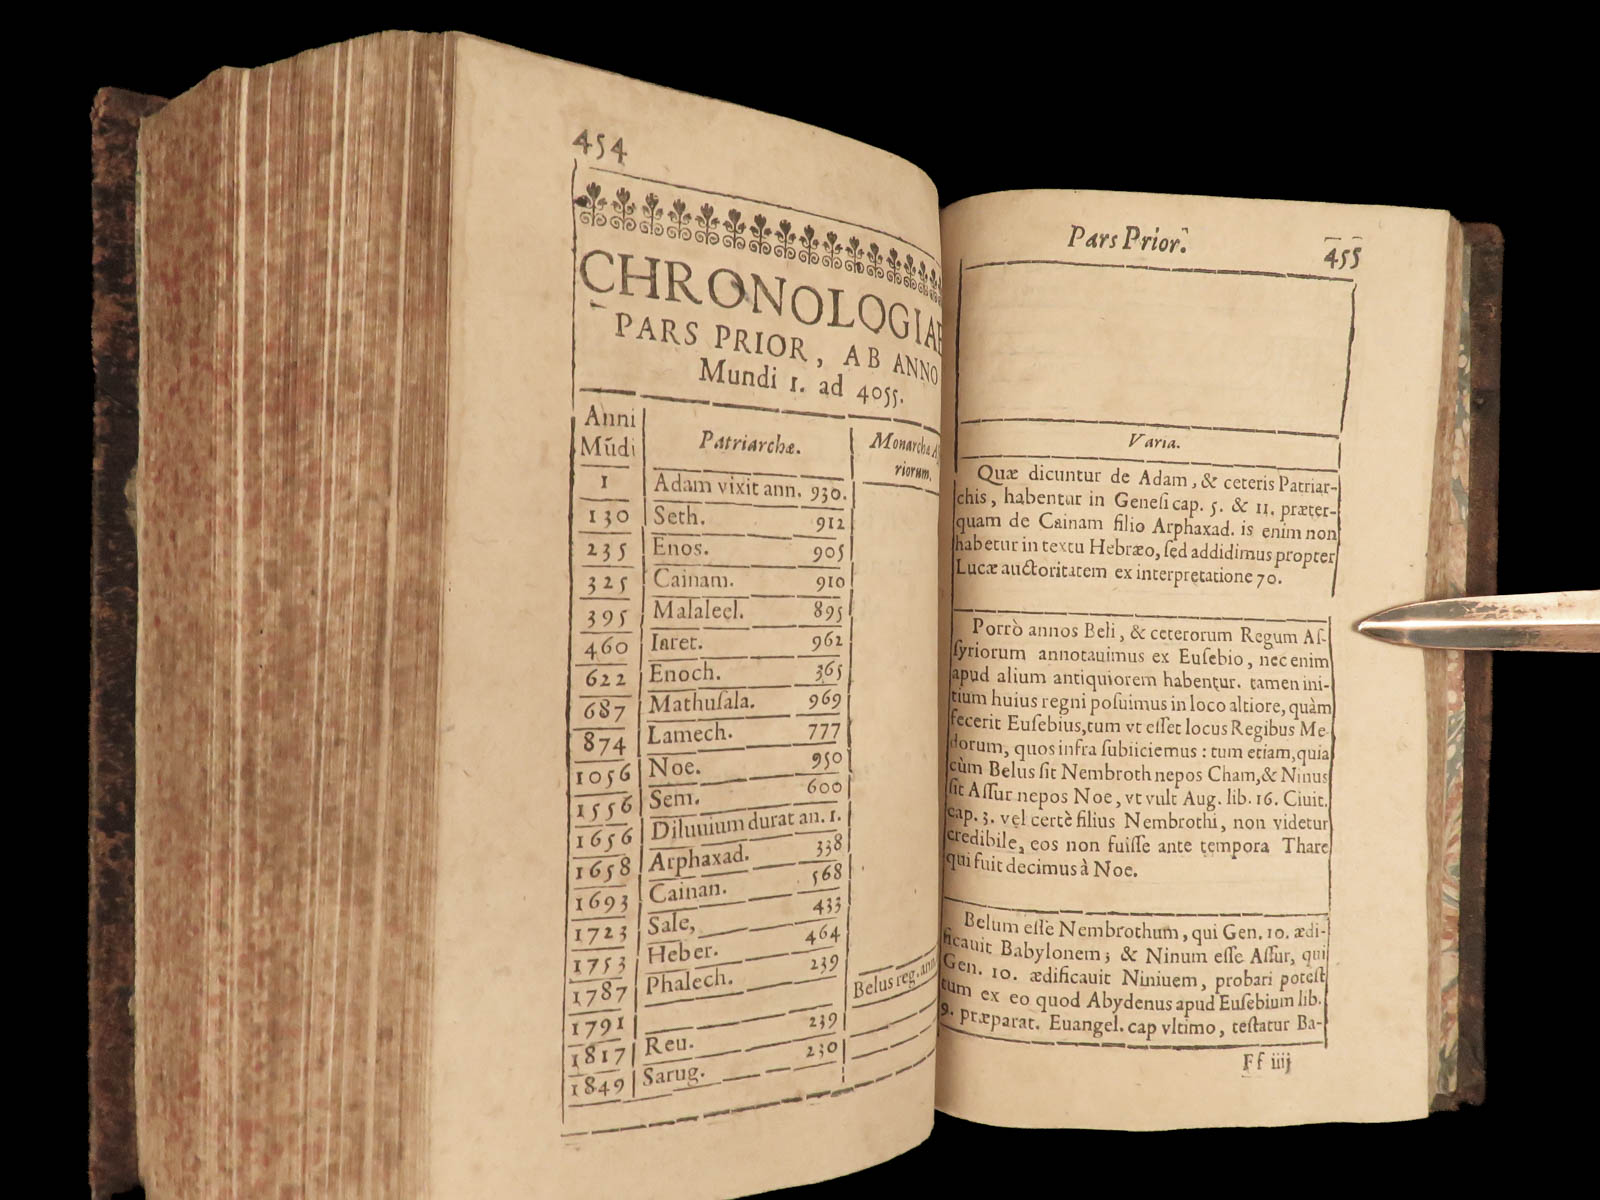 454
CHRONOLOGIAE
PARS PRIOR, AB ANNO
Mundi 1. ad 4055.
Anni Mūdi | Patriarchæ. | Monarchæ A
riorum.
1 | Adam vixit ann. 930.
130 | Seth. 912
235 | Enos. 905
325 | Cainam. 910
395 | Malaleel. 895
460 | Iaret. 962
622 | Enoch. 365
687 | Mathuſala. 969
874 | Lamech. 777
1056 | Noe. 950
1556 | Sem. 600
1656 | Diluuium durat an. 1.
1658 | Arphaxad. 338
1693 | Cainan. 568
1723 | Sale, 433
1753 | Heber. 464
1787 | Phalech. 239 | Belus reg. ann.
1791
1817 | Reu. 239
1849 | Sarug. 230
Pars Prior. 455
Varia.
Quæ dicuntur de Adam, & ceteris Patriar-
chis, habentur in Geneſi cap. 5. & 11. præter-
quam de Cainam filio Arphaxad. is enim non
habetur in textu Hebræo, ſed addidimus propter
Lucæ auctoritatem ex interpretatione 70.
Porrò annos Beli, & ceterorum Regum Aſ-
ſyriorum annotauimus ex Euſebio, nec enim
apud alium antiquiorem habentur. tamen ini-
tium huius regni poſuimus in loco altiore, quàm
fecerit Euſebius, tum vt eſſet locus Regibus Me-
dorum, quos infra ſubiiciemus : tum etiam, quia
cùm Belus ſit Nembroth nepos Cham, & Ninus
ſit Aſſur nepos Noe, vt vult Aug. lib. 16. Ciuit.
cap. 3. vel certè filius Nembrothi, non videtur
credibile, eos non fuiſſe ante tempora Thare
qui fuit decimus à Noe.
Belum eſſe Nembrothum, qui Gen. 10. ædi-
ficauit Babylonem; & Ninum eſſe Aſſur, qui
Gen. 10. ædificauit Niniuem, probari poteſt
tum ex eo quod Abydenus apud Euſebium lib.
9. præparat. Euangel. cap vltimo, teſtatur Ba-
Ff iiij